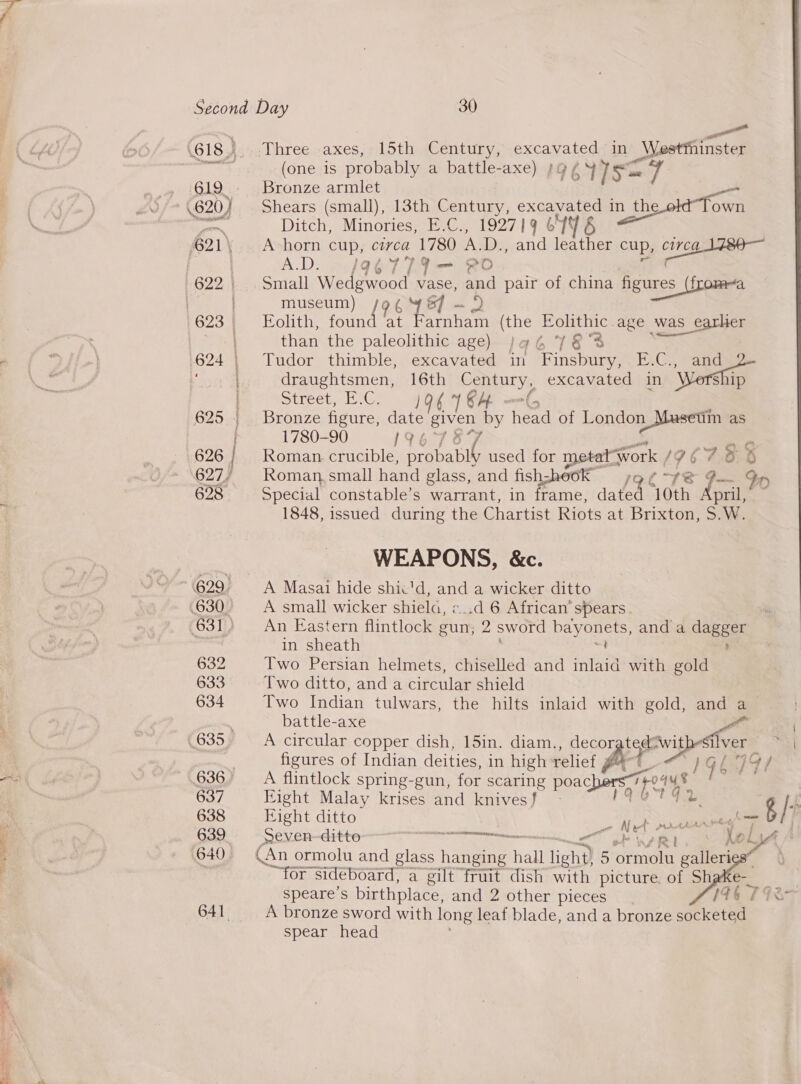 Second Day 30
618 Three axes, 15th Century, excavated in Westminster
(one is probably a battle-axe)
619 Bronze armlet
620 Shears (small), 13th Century, excavated in the old Town
Ditch, Minories, E.C., 1927
621 A horn cup, circa 1780 A.D., and leather cup, circa 1780
A.D.
622 Small Wedgwood vase, and pair of china figures (from a
museum)
623 Eolith, found at Farnham (the Eolithic age was earlier
than the paleolithic age)
624 Tudor thimble, excavated in Finsbury, E.C., and 2
draughtsmen, 16th Century, excavated in Worship
Street, E.C.
625 Bronze figure, date given by head of London Museum as
1780-90
626 Roman crucible, probably used for metal work 196788
627 Roman small hand glass, and fish-hook
628 Special constable's warrant, in frame, dated 10th April,
1848, issued during the Chartist Riots at Brixton, S.W.
WEAPONS, &c.
629 A Masai hide shi'd, and a wicker ditto
630 A small wicker shield, d 6 African spears
631 An Eastern flintlock gun, 2 sword bayonets, and a dagger
in sheath
632 Two Persian helmets, chiselled and inlaid with gold
633 Two ditto, and a circular shield
634 Two Indian tulwars, the hilts inlaid with gold, and a
battle-axe
635 A circular copper dish, 15in. diam., decorated with silver
figures of Indian deities, in high relief
636 A flintlock spring-gun, for scaring poachers
637 Eight Malay krises and knives
638 Eight ditto
639 Seven ditto
640 An ormolu and glass hanging hall light, 5 ormolu galleries
for sideboard, a gilt fruit dish with picture of Shake-
speare's birthplace, and 2 other pieces
641 A bronze sword with long leaf blade, and a bronze socketed
spear head